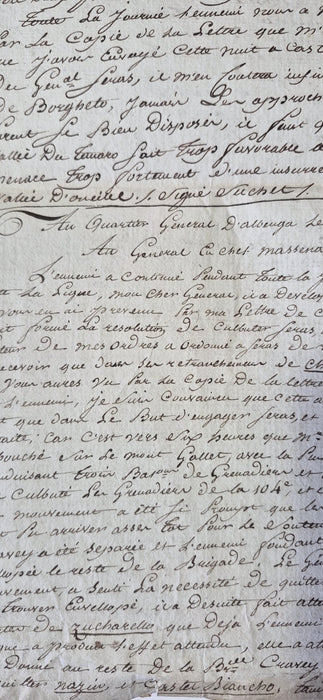 toute La Journée L'ennemi nous a
Par La Copie de La Lettre que m'
que J'avois Envoyé Cette nuit a Cast
du Gen.al Seras, il m'en Coutera infi
de Borgheto, Jamais Les approch
furent Si Bien Disposés, il faut q
Vallée Du Tanaro fait trop favorable a
menace trop fortement d'une insurre
Vallée d'oneille. /. Signé Suchet /.
Au Quartier Général D'albenga Le
Au General En Chef massena
L'ennemi a Continué Pendant toute la J
La Ligne, mon Cher General, il a Develop
vous en ai prevenu Par ma Lettre de C
formé La resolution de Culbuter Seras,
de mes ordres a ordonné a Seras de
recevoir que dans Ses retranchemens de
Vous aures Vu Par La Copie de la lettre
L'ennemi, Je Suis Convaincu que Cette a
que dans Le But d'engager Seras, et
Car C'est vers Six heures que M.
Débouché Sur Le mont Galet, avec La
Conduisant trois Bat.ons de Grenadiers et
Culbuté Les Grenadiers de la 104.e, et
mouvement a été Si Prompt que la
Pu arriver asses tot Pour le Soutenir
Cravey a été Separée et L'ennemi fondant
Enveloppée le reste de la Brigade. Le Ge
mouvement, a Senti La necessité de quitter
trouver Enveloppé, il a Desuite fait
de Zucharello, que deja L'ennemi
que a produit L'effet attendu, elle a
donné au reste de la B.de Cravey
nazin, et Castel Biancho,